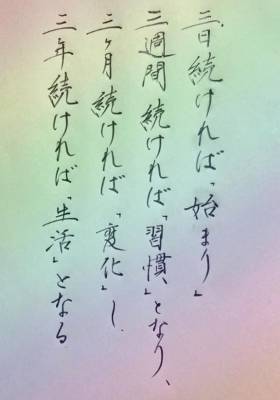 三日続ければ「始まり」
三週間続ければ「習慣」となり、
三ヶ月続ければ「変化」し
三年続ければ「生活」となる